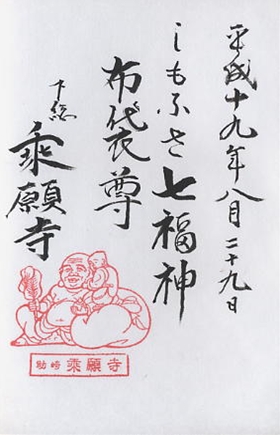 平成十九年八月二十九日
しもふさ七福神
布袋尊
下総
乘願寺
助崎 乘願寺